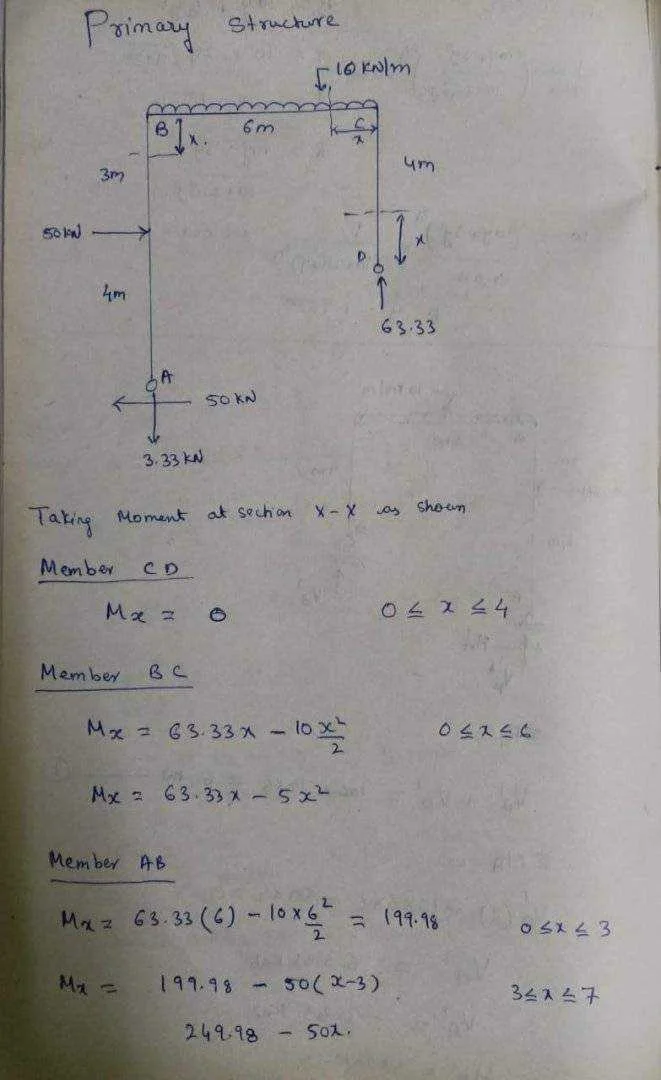 Primary Structure
10 KN/m
B
x.
6m
C
x
3m
4m
50 KN
x
D
4m
63.33
A
50 KN
3.33 KN
Taking Moment at section X-X as shown
Member CD
Mx = 0    0 ≤ x ≤ 4
Member BC
Mx = 63.33x - 10 x²/2    0 ≤ x ≤ 6
Mx = 63.33x - 5x²
Member AB
Mx = 63.33(6) - 10×6²/2 = 199.98    0 ≤ x ≤ 3
Mx = 199.98 - 50(x-3)    3 ≤ x ≤ 7
249.98 - 50x.